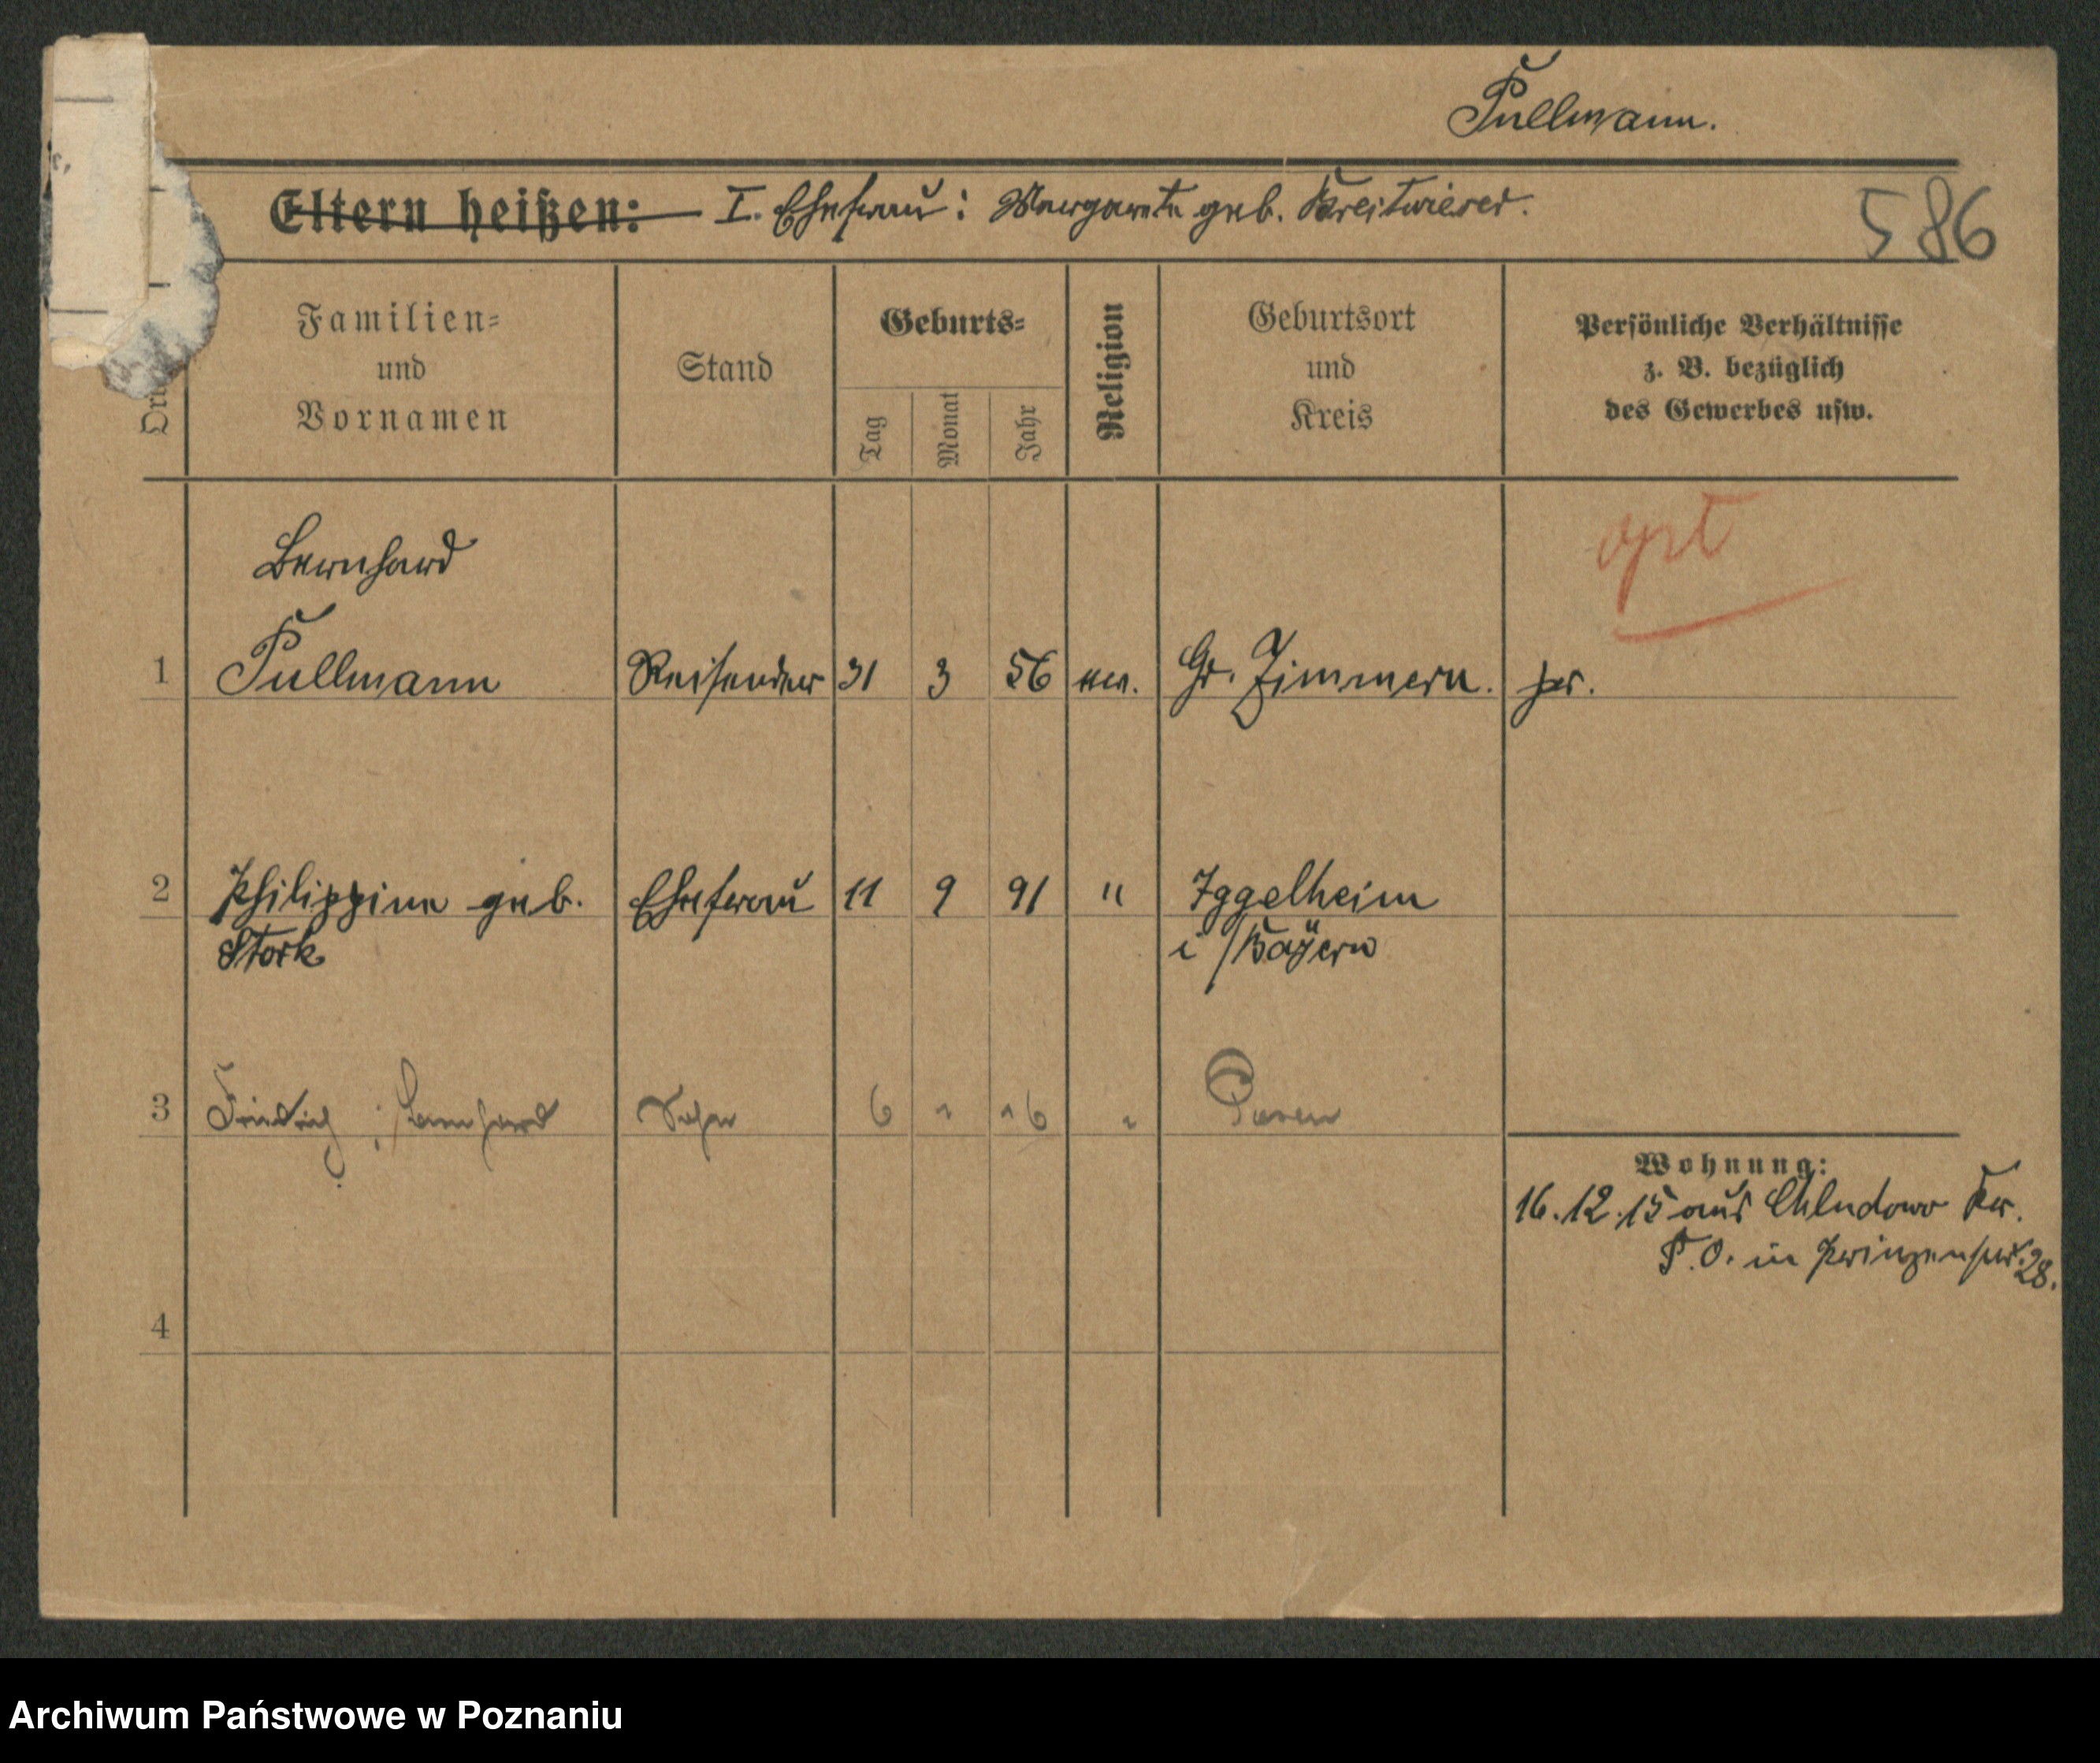 Pullmann.
Eltern heißen: I. Ehefrau: Margarete geb. Kreitwieser.
586
Familien=
und
Vornamen
Stand
Geburts=
Tag
Monat
Jahr
Religion
Geburtsort
und
Kreis
Persönliche Verhältnisse
z. B. bezüglich
des Gewerbes usw.
opt
Bernhard
1 Pullmann Reisender 31 3 56 ev. Gr. Zimmern. pr.
2 Philippine geb. Ehefrau 11 9 91 " Iggelheim
Stork i/Bayern
3 Friedrich Bernhard Sohn 6 Posen
Wohnung:
16.12.15 aus Chludowo Kr.
P. O. in Prinzenstr. 28.
4
Archiwum Państwowe w Poznaniu